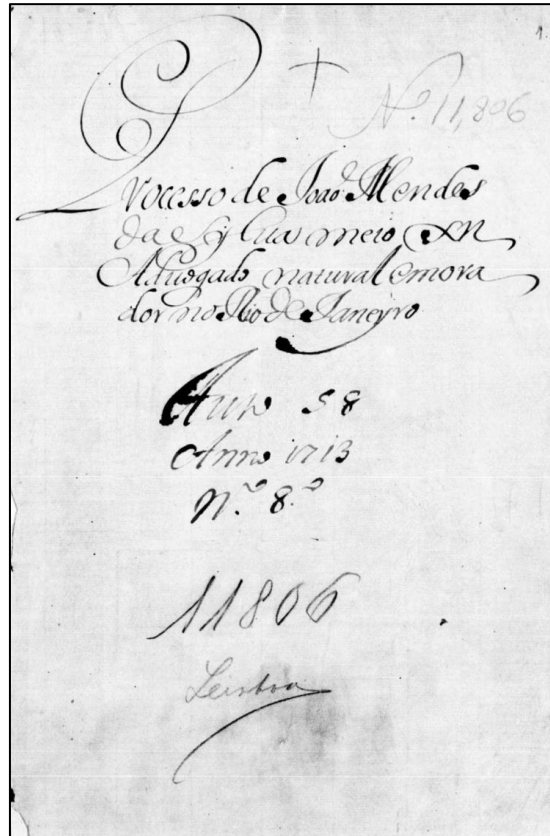 1.
Nº 11,806
Processo de Joaõ Mendes
da Sylva meio XN
Advogado natural e mora
dor no Rio de Janeyro
Auto 58
Anno 1713
N.º 8.º
11806
Lisboa